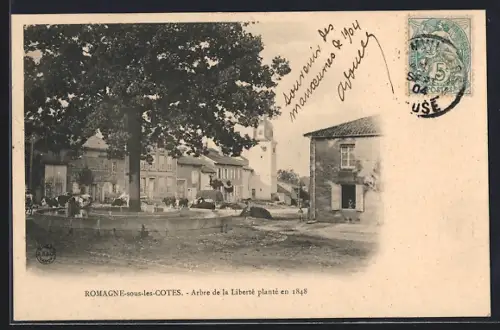 souvenir des
manœuvres de 1904
5
04
USE
ROMAGNE-sous-les-COTES. - Arbre de la Liberté planté en 1848